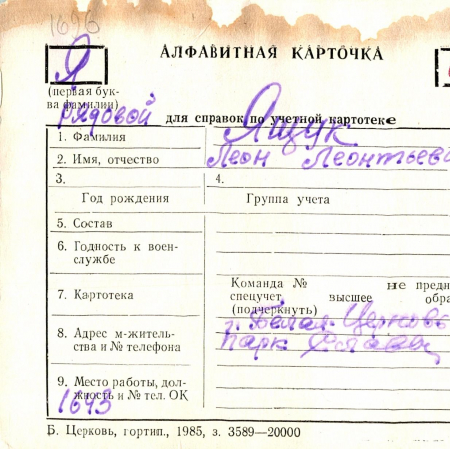 169б
Я
АЛФАВИТНАЯ КАРТОЧКА
(первая бук-
ва фамилии)
рядовой
для справок по учетной картотеке
1. Фамилия Ящук
2. Имя, отчество Леон Леонтьев
3. 4.
Год рождения Группа учета
5. Состав
6. Годность к воен-
службе
7. Картотека
Команда № не предн
спецучет, высшее обра
(подчеркнуть)
8. Адрес м-житель-
ства и № телефона
г. Белая Церковь
парк Славы
9. Место работы, дол-
жность и № тел. ОК
1643
Б. Церковь, гортип., 1985, з. 3589—20000